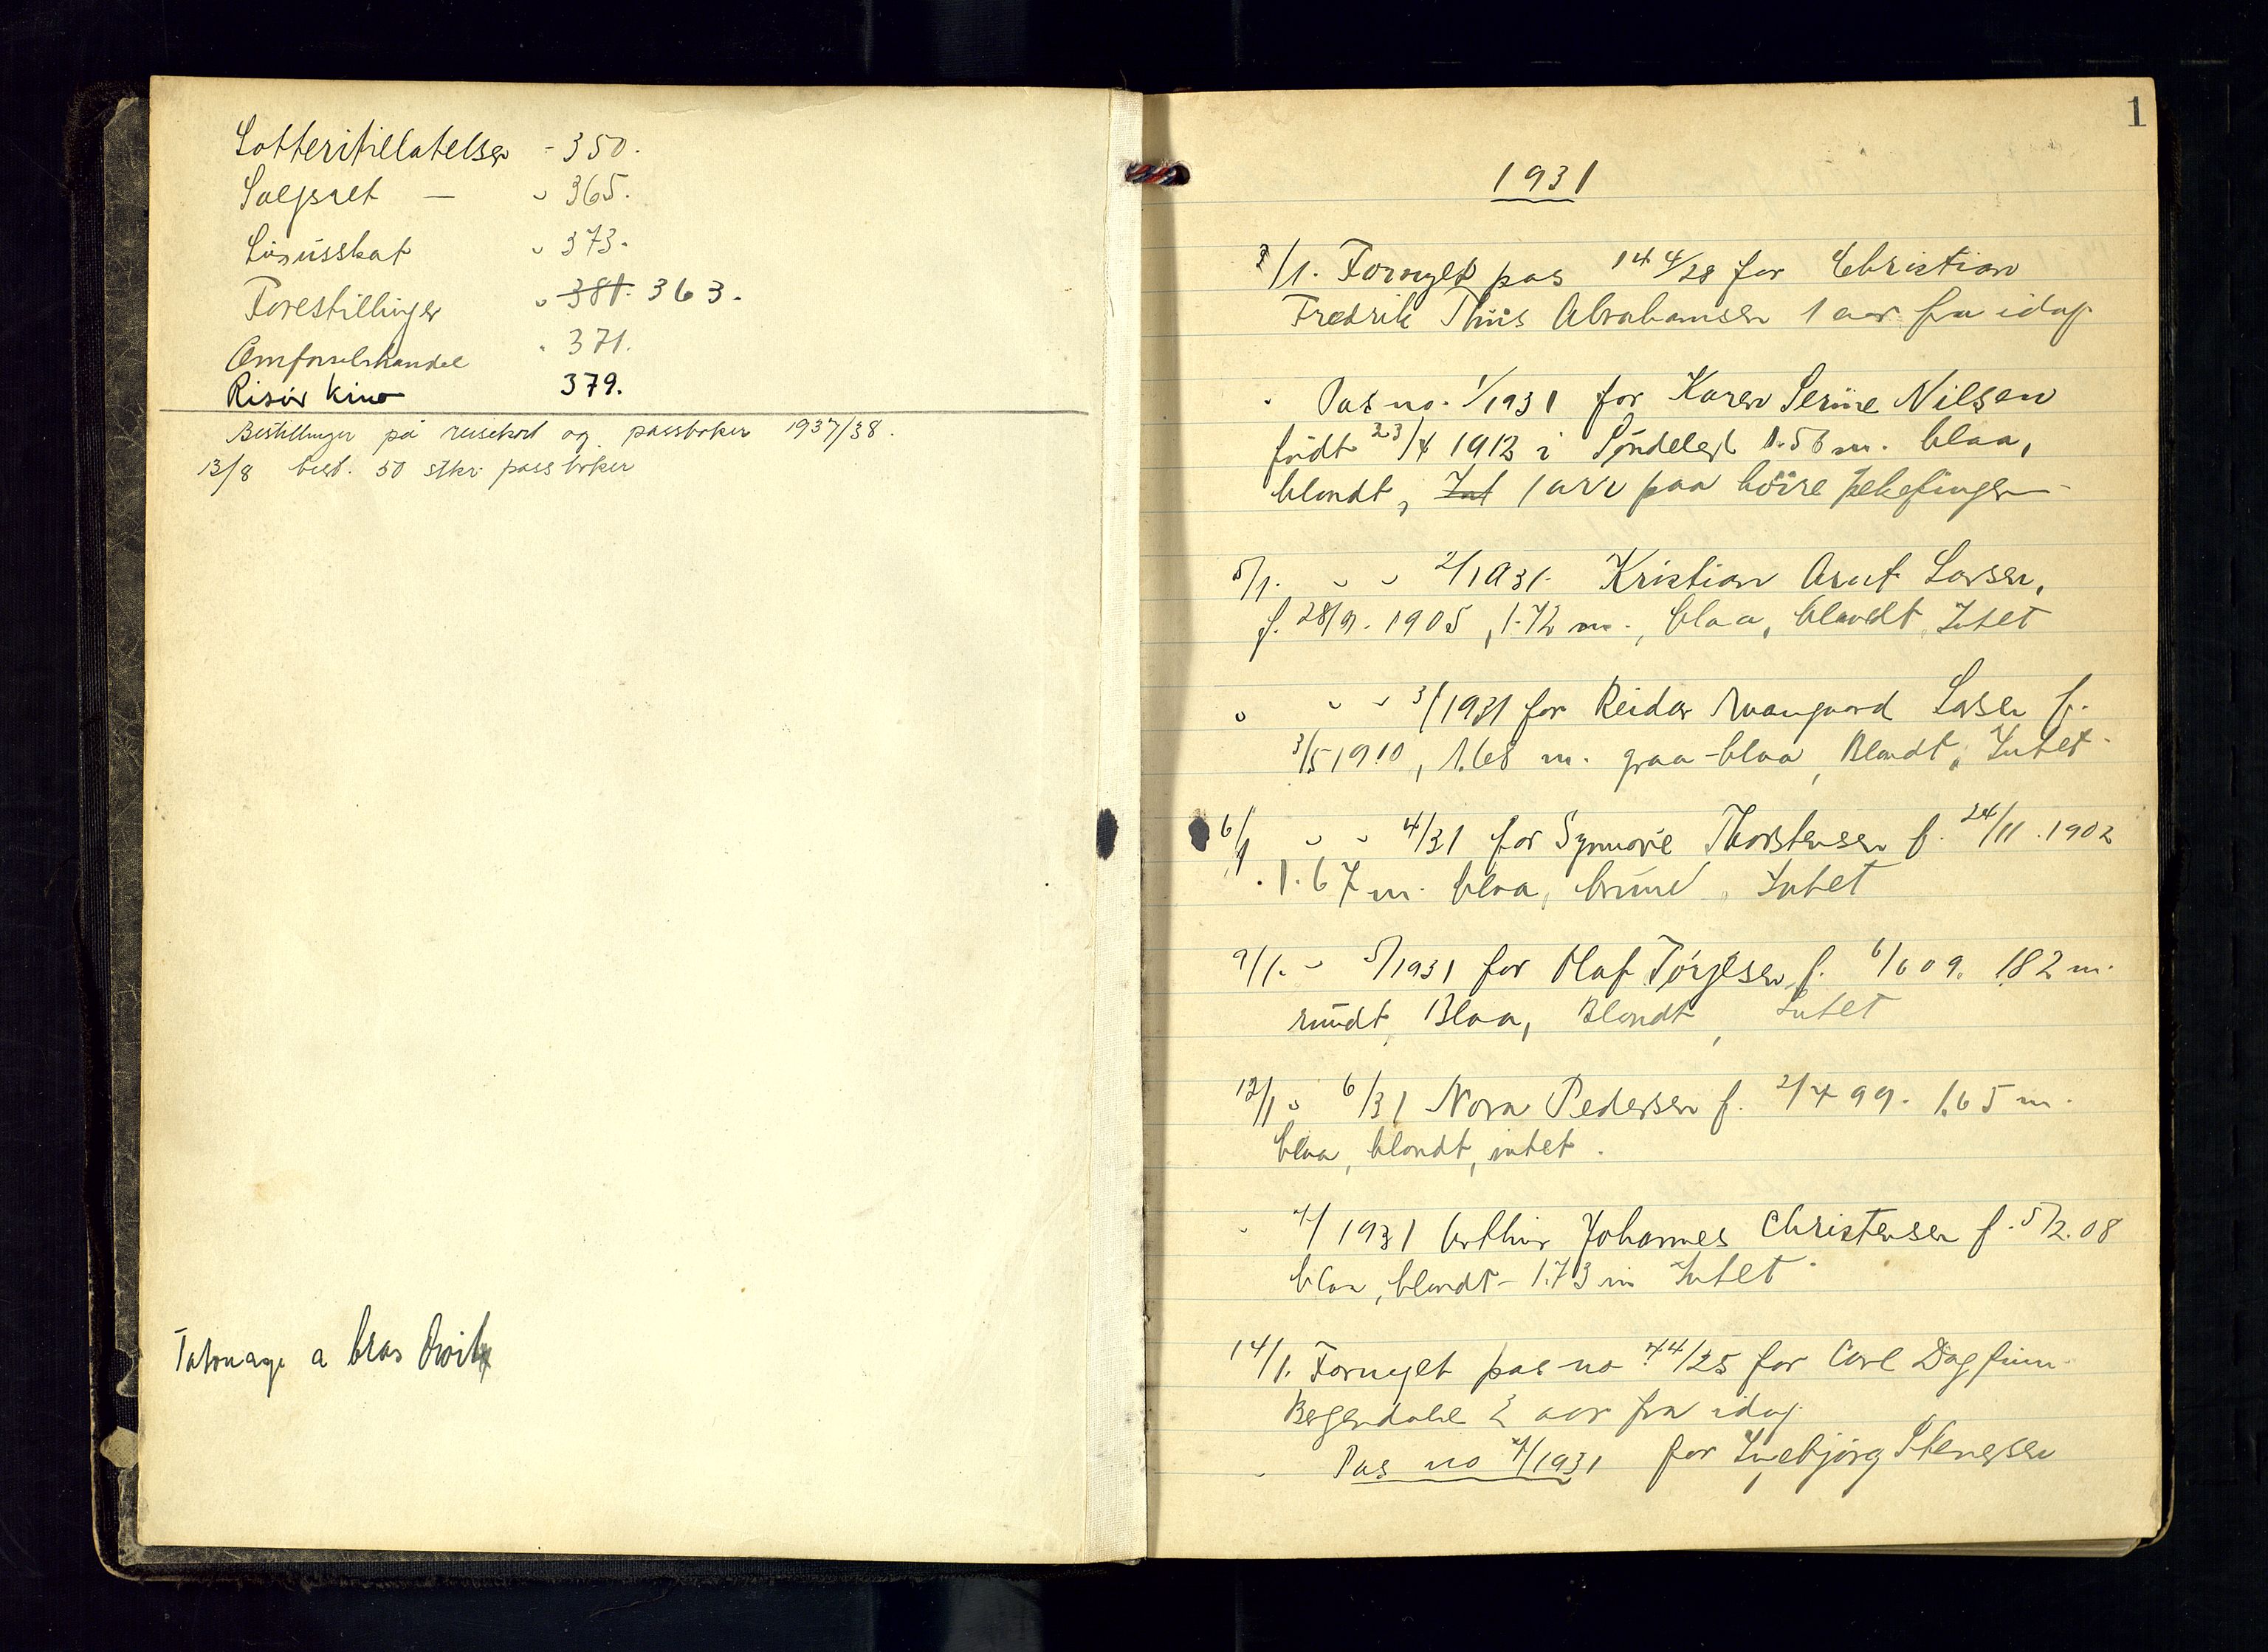 Lotteritillatelser - 350.
Salgsret — " 365.
Luxusskat " 373.
Forestillinger " 381. 363.
Omførselshandel " 371.
Risør kino 379.
Bestillinger på reisekort og passbøker 1937/38.
13/8 best. 50 stkr passbøker
Tatouage a bras droit
1
1931
3/1. Fornyet pas 144/28 for Christian
Fredrik Thiis Abrahamsen 1 aar fra idag
" Pas no. 1/1931 for Karen Serine Nilsen
født 23/4 1912 i Søndeled 1.56 m. blaa,
blondt, Int 1 arr paa høire pekefinger
5/1. " " 2/1931. Kristian Arnt Larsen,
f. 28/9. 1905, 1.72 m., blaa, blondt, Intet
" " " 3/1931 for Reidar Larsen f.
3/5 1910, 1.68 m. graa-blaa, Blondt, Intet.
6/1 " " 4/31 for Synnøve Thorstensen f. 24/11.1902
1.67 m. blaa, brunt, Intet
9/1. " 5/1931 for Olaf Torjesen, f. 6/6 09. 1.82 m.
rundt, Blaa, Blondt, Intet
12/1 " 6/31 Nora Pedersen f. 2/4 99. 1.65 m.
blaa, blondt, intet.
" 7/1931 Arthur Johannes Christensen f. 5/2.08
blaa, blondt - 1.73 m Intet.
14/1. Fornyet pas no 44/25 for Carl Dagfinn
Bergendahl 2 aar fra idag
" Pas no /1931 for Ingebjørg Stenersen